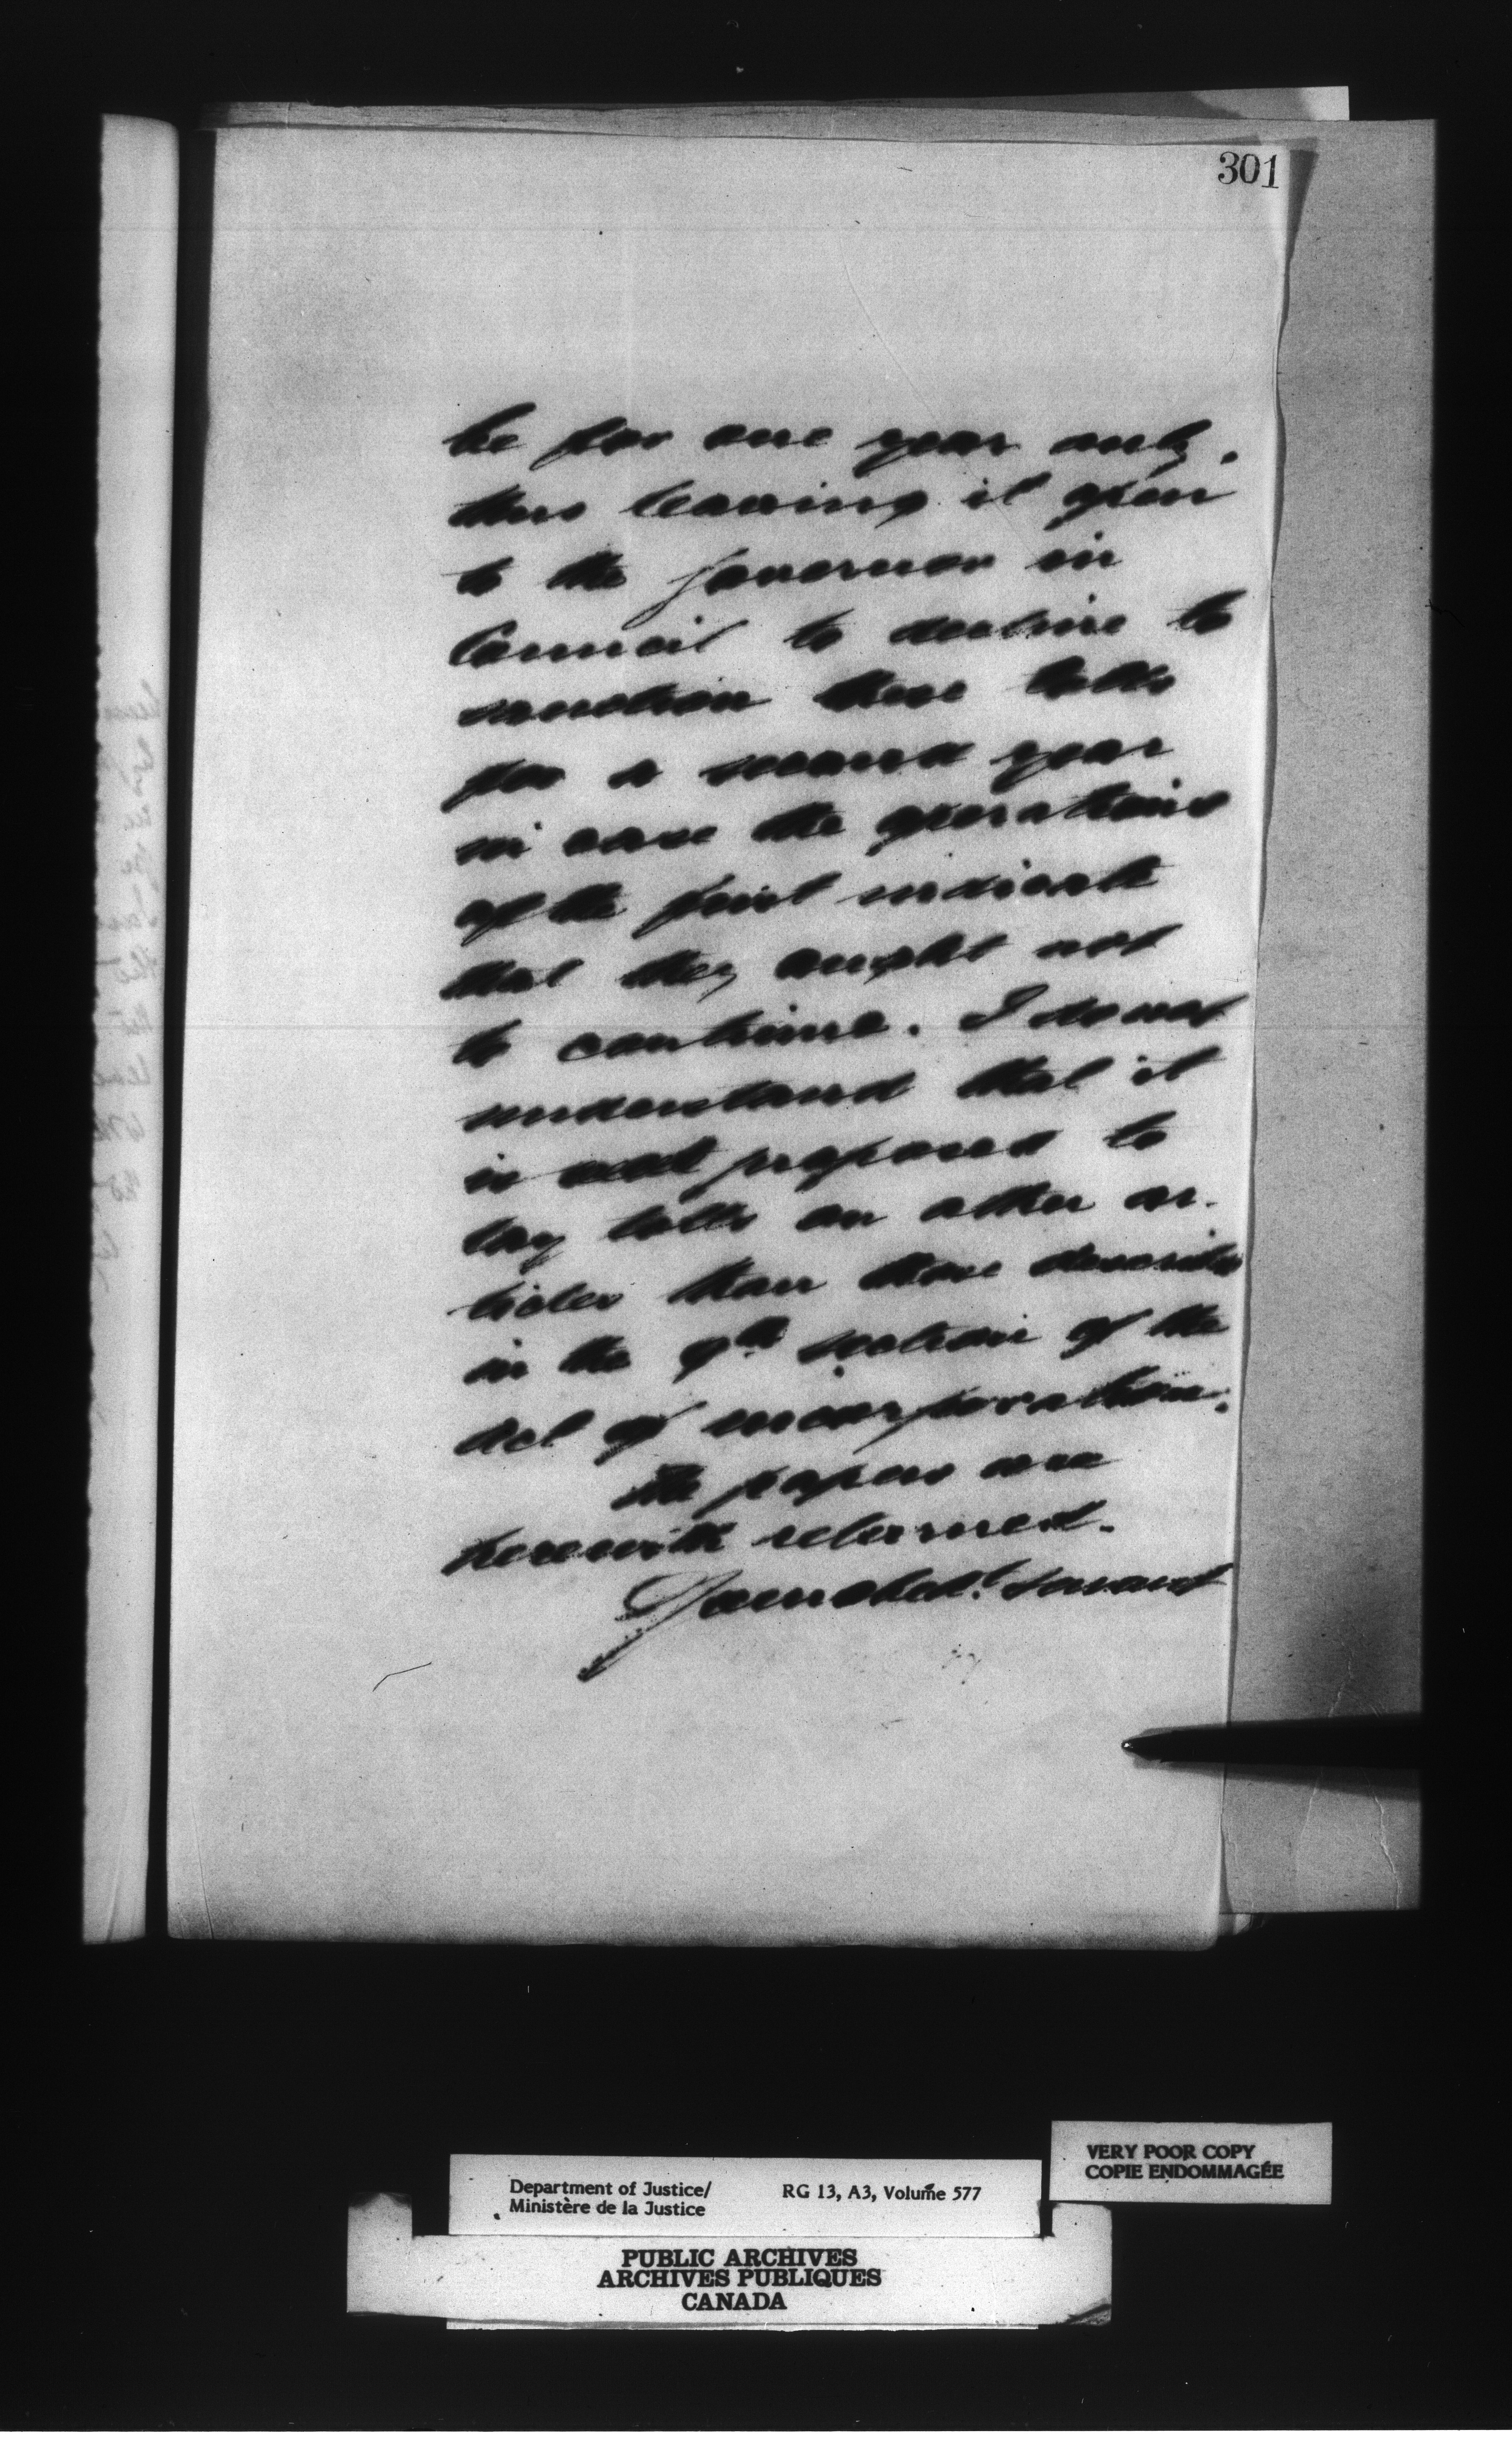 301
be for one year only.
thus leaving it open
to the Governor in
Council to decline to
sanction these tolls
for a second year
in case the operations
of the first indicate
that they ought not
to continue. I do not
understand that it
is proposed to
lay tolls on other ar-
ticles than those described
in the 9th section of the
Act of incorporation.
The papers are
herewith returned.
Your obedt. servant
VERY POOR COPY
COPIE ENDOMMAGÉE
Department of Justice/ RG 13, A3, Volume 577
Ministère de la Justice
PUBLIC ARCHIVES
ARCHIVES PUBLIQUES
CANADA